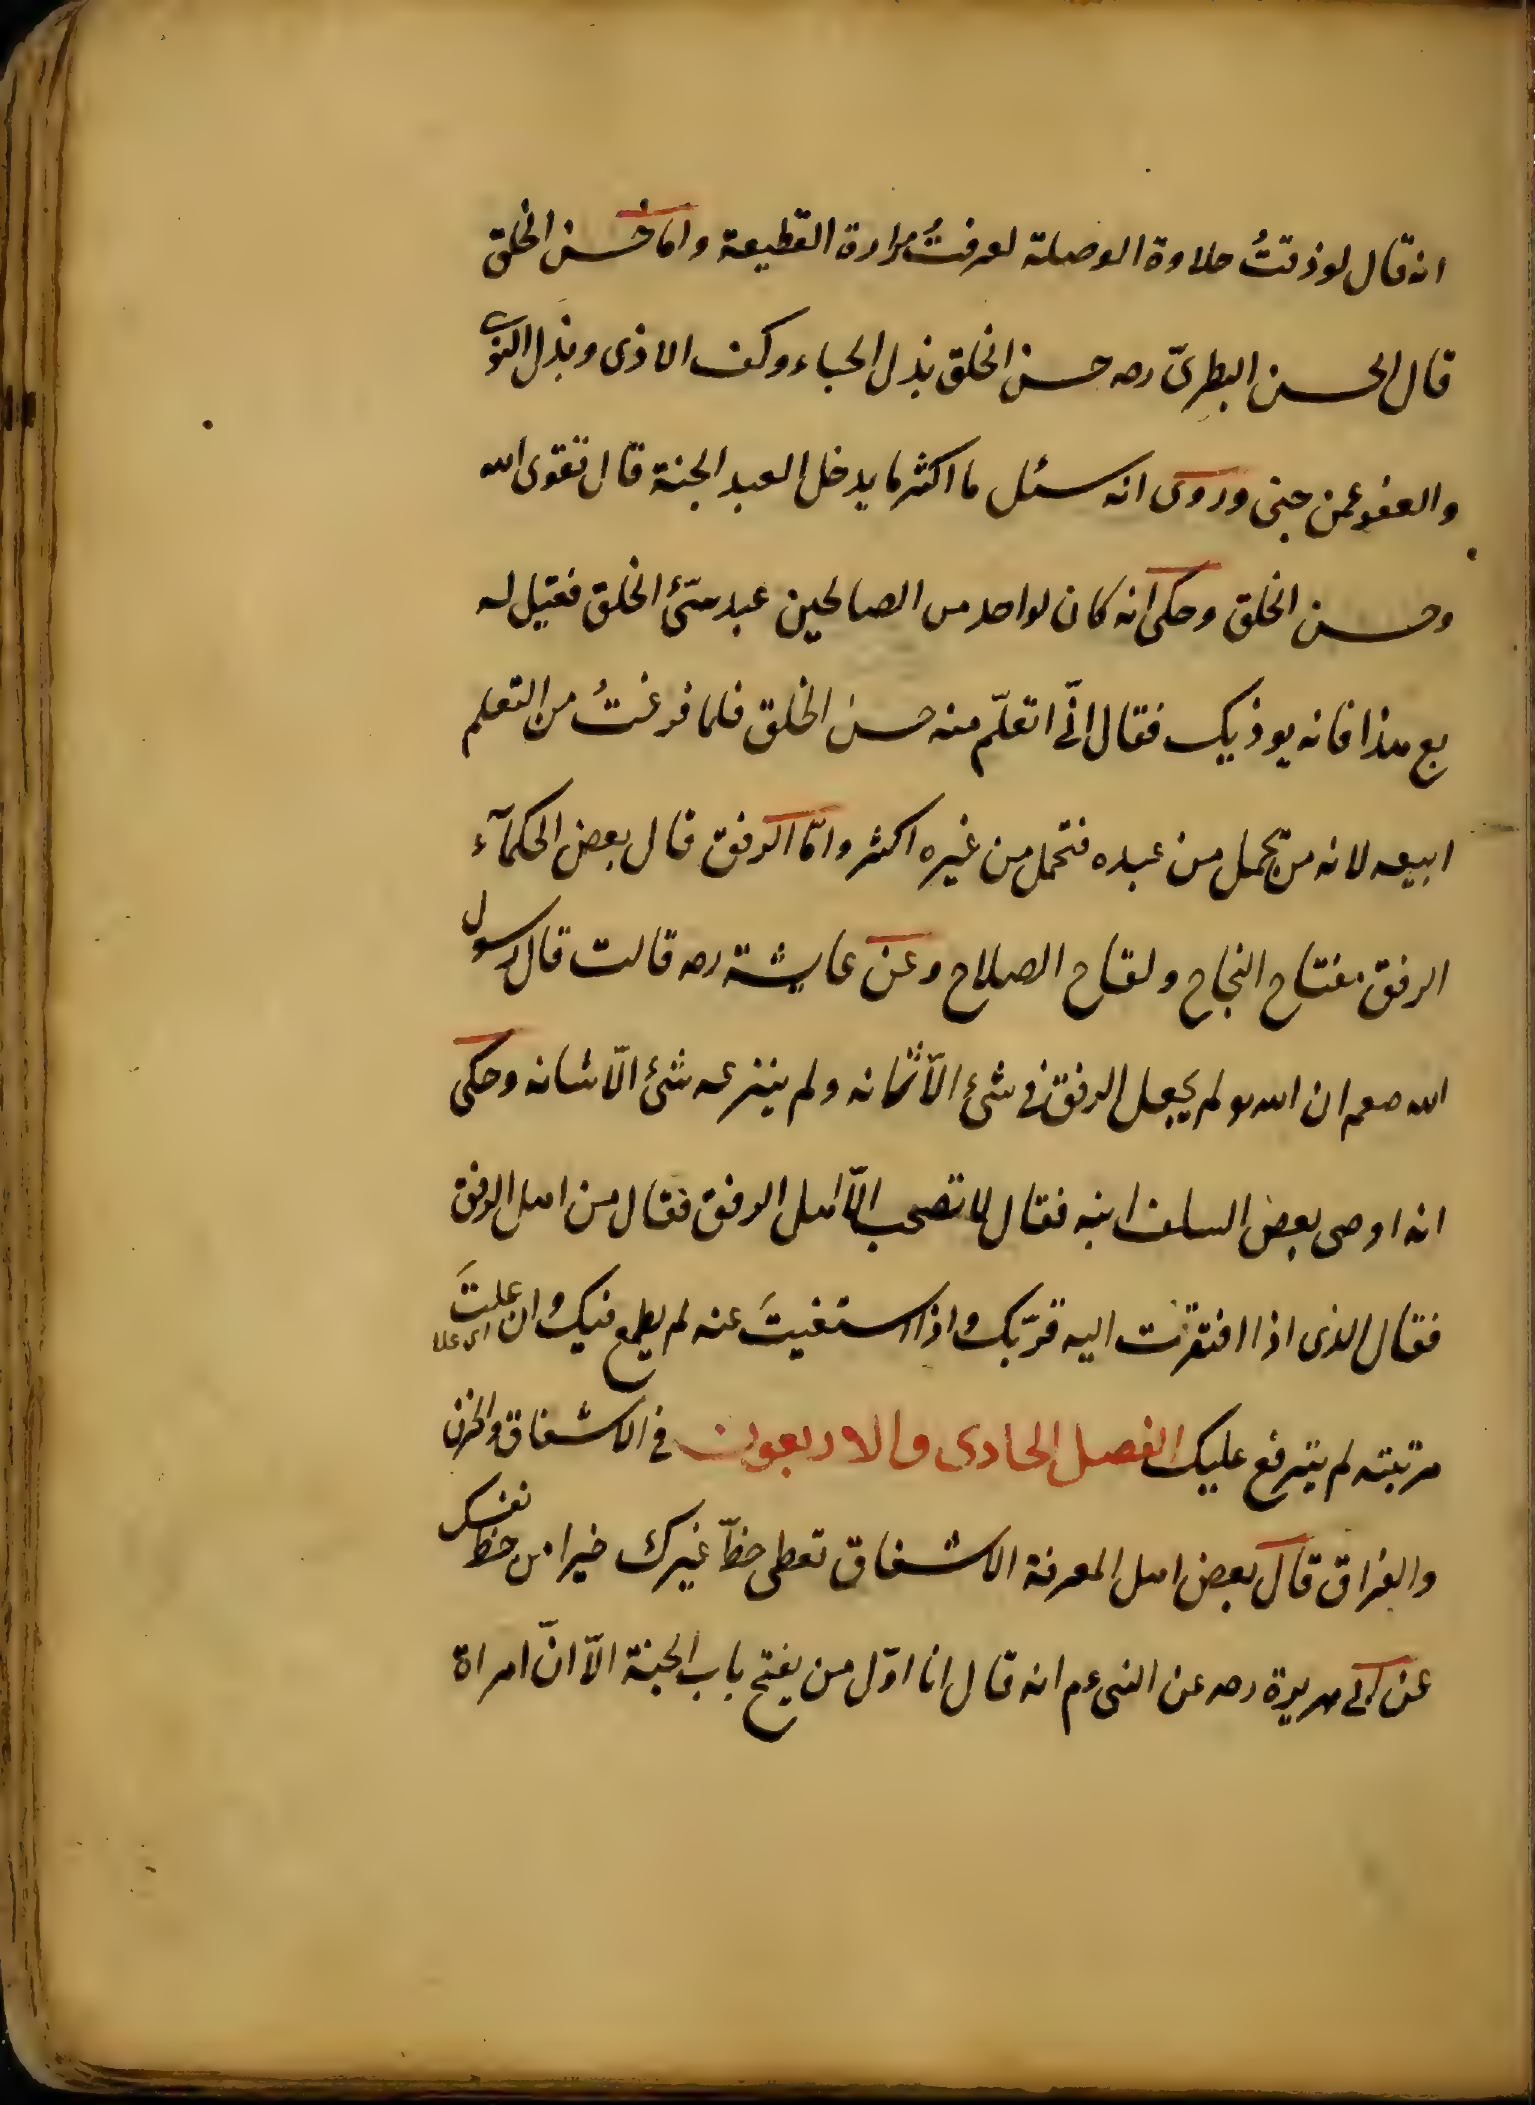 انه قال لو ذقتُ حلاوة الوصلة لعرفتُ مرارة القطيعة واما حسن الخلق
قال الحسن البصرىّ ره حسن الخلق بذل الحباء وكف الاذى وبذل
والعفو عمن جنى وروى انه سئل ما اكثر ما يدخل العبد الجنة قال تقوى الله
وحسن الخلق وحكى انه كان لواحد من الصالحين عبد سيّئ الخلق فقيل له
بع هذا فانه يوذيك فقال انّى اتعلّم منه حسن الخلق فلما فرغتُ من التعلم
ابيعه لانه من تحمل من عبده فتحمل من غيره اكثر وامّا الرفق قال بعض الحكمآء
الرفق مفتاح النجاح ولقاح الصلاح وعن عايشة ره قالت قال رسول
الله صعم ان الله لم يجعل الرفق فى شئ الّا زانه ولم ينزعه شئ الّا شانه وحكى
انه اوصى بعض السلف ابنه فقال لا تصحب الّا اهل الرفق فقال من اهل الرفق
فقال الذى اذا افتقرت اليه قرّبك واذا استغنيتَ عنه لم يطمع فيك وان علتَ اى علا
مرتبته لم يترفع عليك الفصل الحادى والاربعون فى الاشفاق والحزن
والفراق قال بعض اهل المعرفة الاشفاق تعطى حظّ غيرك خيرا من حظ نفسك
عن ابى هريرة ره عن النبى عم انه قال انا اوّل من يفتح باب الجنة الّا انّ امراة